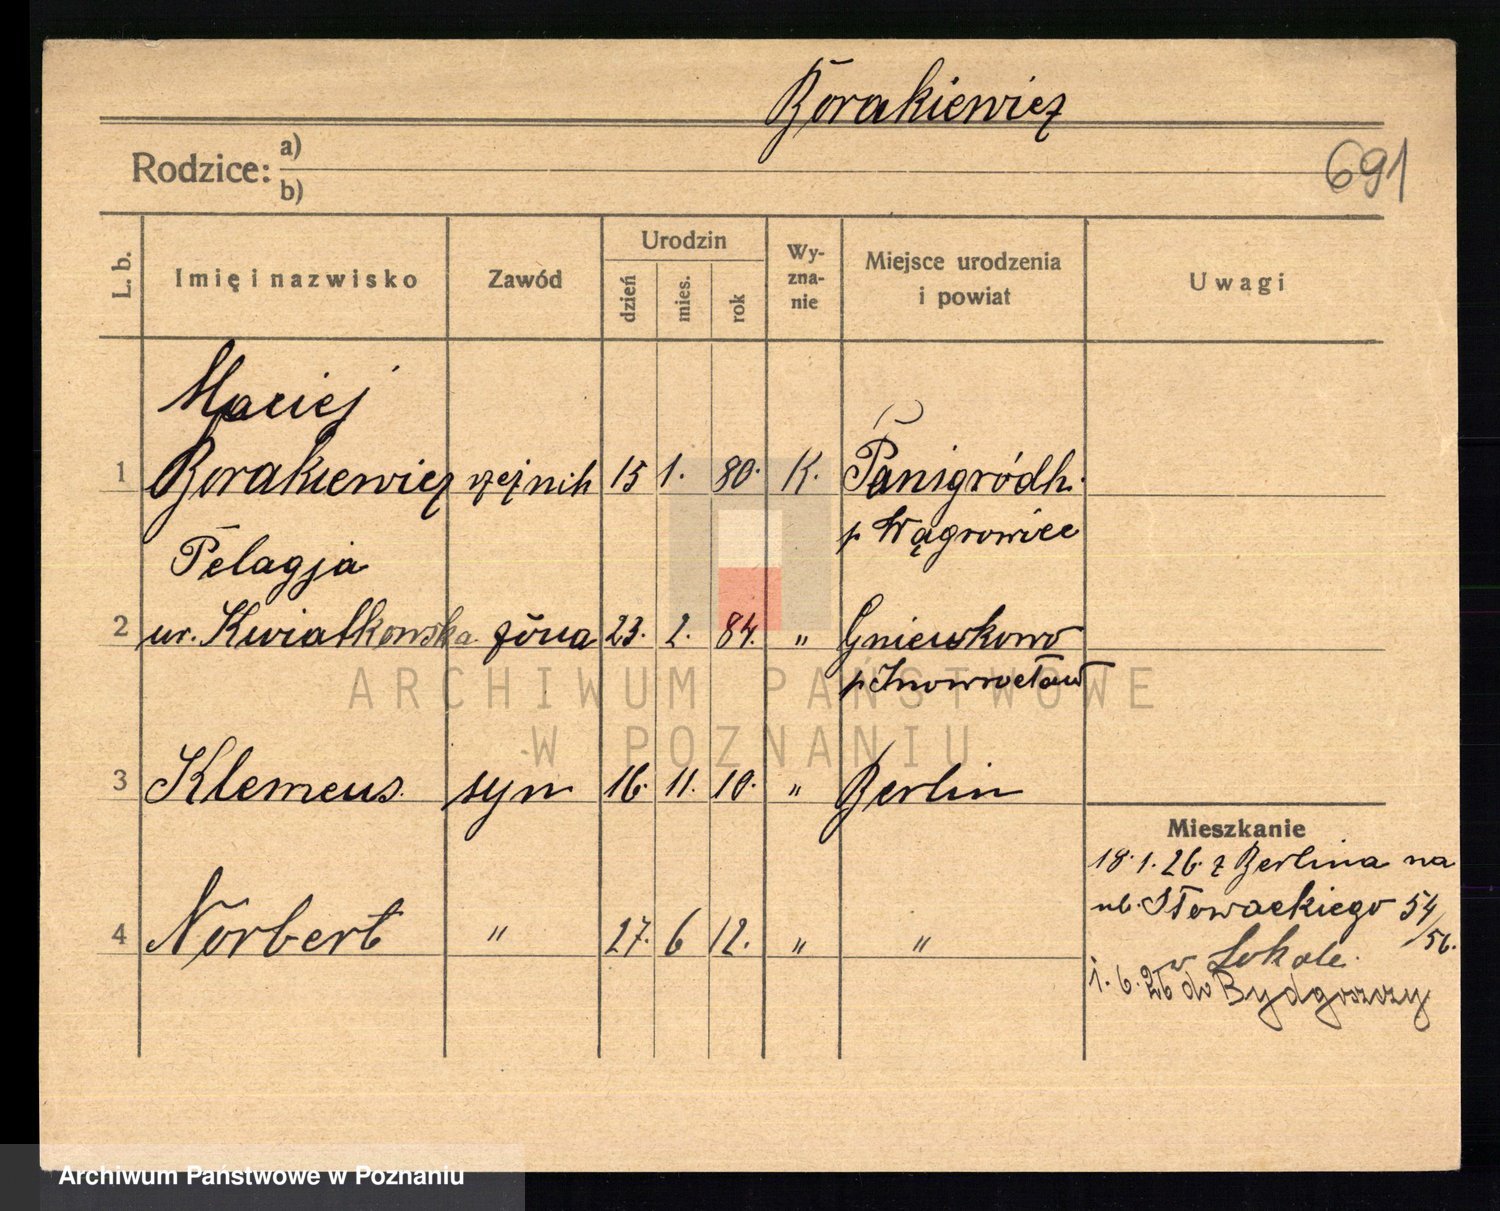 Borakiewicz
691
Rodzice: a)
b)
L. b.
Imię i nazwisko
Zawód
Urodzin
dzień
mies.
rok
Wy-
zna-
nie
Miejsce urodzenia
i powiat
Uwagi
Maciej
1 Borakiewicz rzeźnik 15 1. 80. K. Panigródh.
p Wągrowiec
Pelagja
2 ur. Kwiatkowska żona 23. 2. 84. " Gniewkowo
p Inowrocław
3 Klemens. syn 16. 11. 10. " Berlin
4 Norbert " 27. 6 12. " "
Mieszkanie
18. 1. 26. z Berlina na
ul. Słowackiego 54/56.
w Lokale.
1. 6. 26 do Bydgoszczy
ARCHIWUM PAŃSTWOWE
W POZNANIU
Archiwum Państwowe w Poznaniu